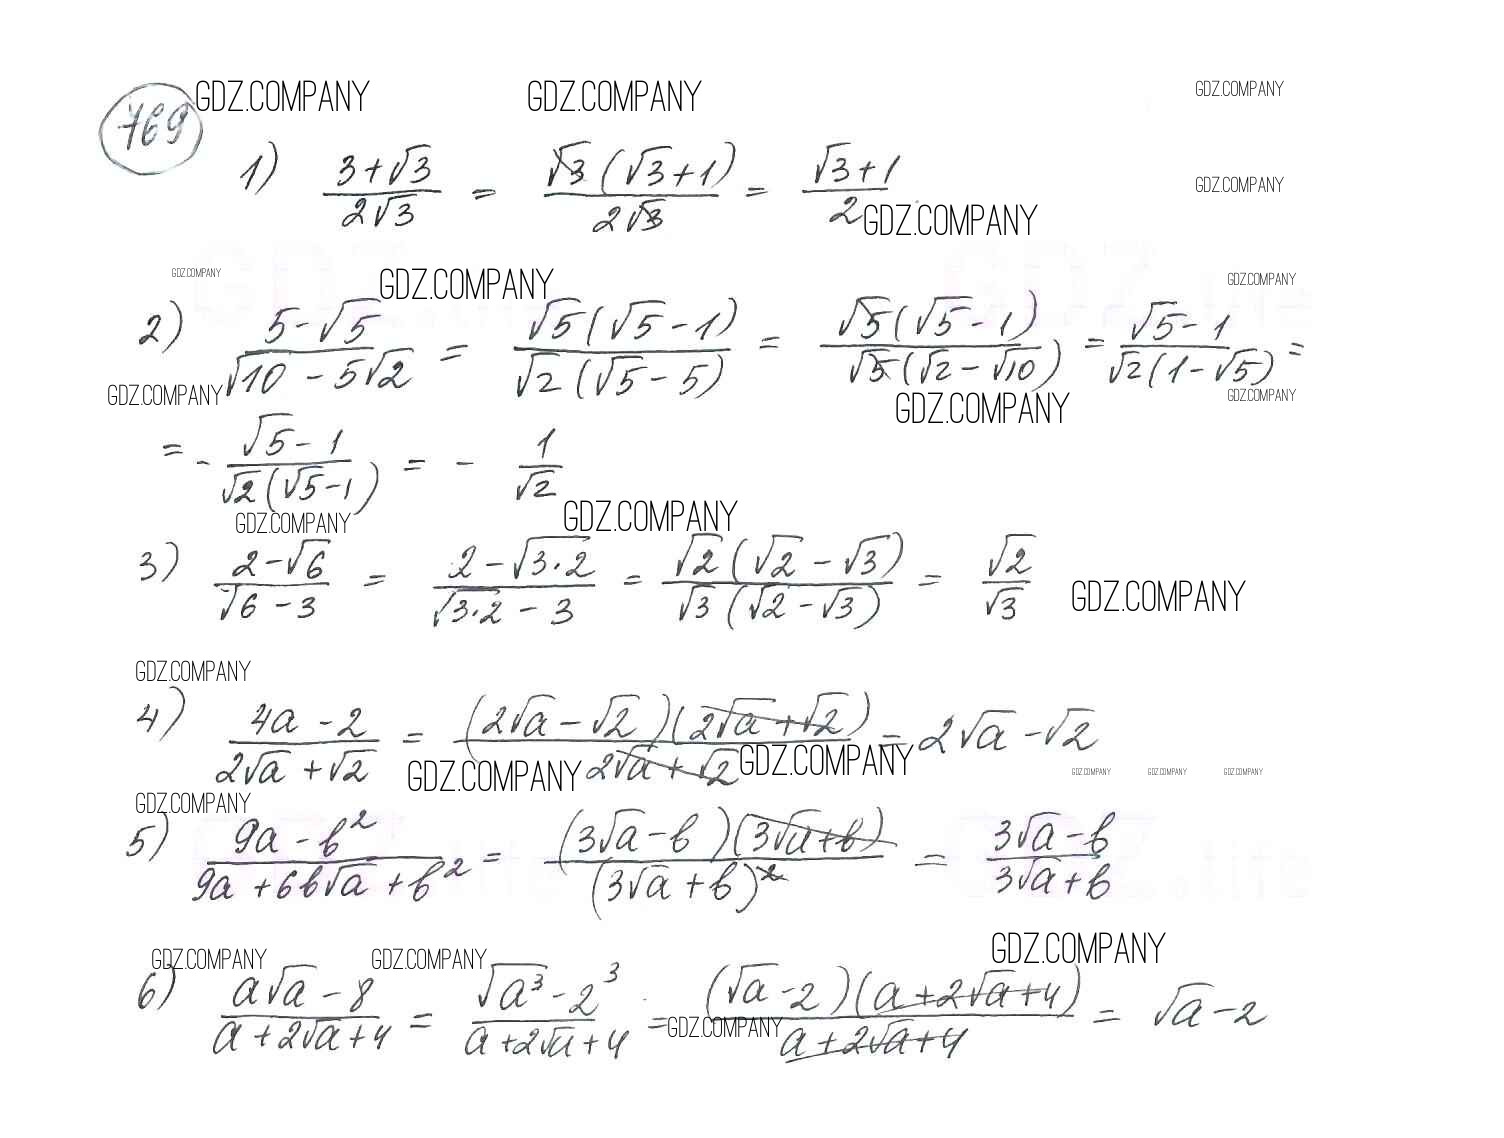 GDZ.COMPANY GDZ.COMPANY GDZ.COMPANY
769
1) (3+√3)/(2√3) = (√3(√3+1))/(2√3) = (√3+1)/2
GDZ.COMPANY
GDZ.COMPANY
GDZ.COMPANY GDZ.COMPANY GDZ.COMPANY
2) (5-√5)/(√10-5√2) = (√5(√5-1))/(√2(√5-5)) = (√5(√5-1))/(√5(√2-√10)) = (√5-1)/(√2(1-√5)) =
GDZ.COMPANY GDZ.COMPANY GDZ.COMPANY
= -(√5-1)/(√2(√5-1)) = -1/√2
GDZ.COMPANY GDZ.COMPANY
3) (2-√6)/(√6-3) = (2-√3·2)/(√3·2-3) = (√2(√2-√3))/(√3(√2-√3)) = √2/√3
GDZ.COMPANY
GDZ.COMPANY
4) (4a-2)/(2√a+√2) = ((2√a-√2)(2√a+√2))/(2√a+√2) = 2√a-√2
GDZ.COMPANY GDZ.COMPANY GDZ.COMPANY GDZ.COMPANY GDZ.COMPANY
GDZ.COMPANY
5) (9a-b²)/(9a+6b√a+b²) = ((3√a-b)(3√a+b))/(3√a+b)² = (3√a-b)/(3√a+b)
GDZ.COMPANY GDZ.COMPANY GDZ.COMPANY
6) (a√a-8)/(a+2√a+4) = (√a³-2³)/(a+2√a+4) = ((√a-2)(a+2√a+4))/(a+2√a+4) = √a-2
GDZ.COMPANY